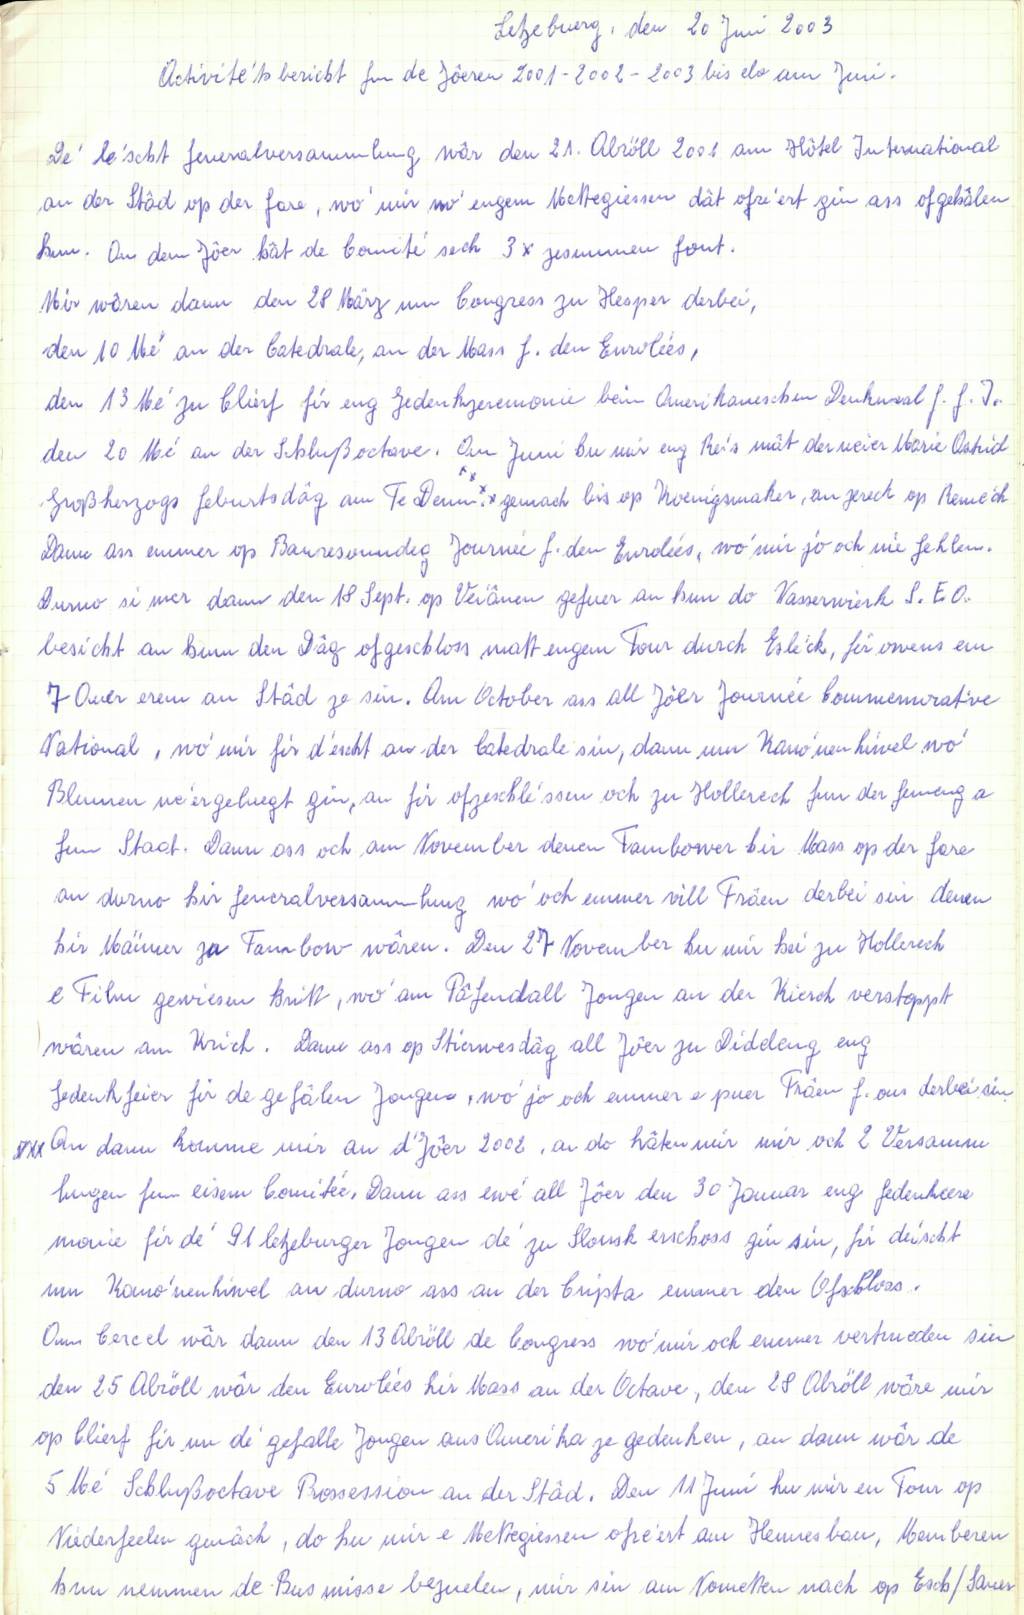 Letzeburg, den 20 Juni 2003
Activité'tsbericht fun de Jôeren 2001-2002-2003 bis elo am Juni.
De' le'scht Generalversammlung wâr den 21. Abröll 2001 am Hôtel International
an der Stâd op der Gare, wo' mir no' engem Mettegiessen dât ofre'ert gin ass ofgehâlen
hun. An dem Jôer hât de Comité sech 3x zesummen font.
Mir wâren dann den 28 März um Congress zu Hesper derbei,
den 10 Mé an der Catedrale, an der Mass f. den Enrolées,
den 13 Mé zu Clierf fir eng Gedenkzeremonie beim Amerikaneschen Denkmal f. G. I.
den 20 Mé an der Schlußoctave. Am Juni hu mir eng Reis mat der neier Marie Astrid
Großherzogs Geburtsdâg am Te Deum. xxxx gemach bis op Koenigsmaker, an zereck op Remech
Dann ass emmer op Bauresonndeg Journée f. den Enrolées, wo' mir jo och nie fehlen.
Durno si mer dann den 18 Sept. op Veiânen gefuer an hun do Wasserwierk S. E. O.
besicht an hunn den Dâg ofgeschloss matt engem Tour durch Eslék, fir owens em
7 Auer erem an Stâd ze sin. Am October ass all Jôer Journée Commemorative
National, wo' mir fir d'éscht an der Catedrale sin, dann um Kano'nenhiwel wo'
Blummen ne'ergeluegt gin, an fir ofzeschle'ssen och zu Hollerech fun der Gemeng a
fum Staat. Dann ass och am November denen Tambower hir Mass op der Gare
an durno hir Generalversammlung wo' och emmer vill Frâen derbei sin denen
hir Männer zu Tambow wâren. Den 27 November hu mir hei zu Hollerech
e Film gewiesen kritt, wo' am Pâfendall Jongen an der Kierch verstoppt
wâren am Krich. Dann ass op Stierwesdâg all Jôer zu Diddeleng eng
Gedenkfeier fir de gefâlen Jongen, wo' jo och emmer e puer Frâen f. ons derbei sin.
xxx An dann komme mir an d'Jôer 2002, an do hâten mir mir och 2 Versamm
lungen fun eisem Comitée. Dann ass ewé all Jôer den 30 Januar eng Gedenkzere
monie fir dé 91 letzeburger Jongen dé zu Slonsk erschoss gin sin, fir déischt
um Kano'nenhiwel an durno ass an der Cripta emmer den Ofschloss.
Am Cercel wâr dann den 13 Abröll de Congress wo' mir och emmer vertrueden sin
den 25 Abröll wâr den Enrolées hir Mass an der Octave, den 28 Abröll wâre mir
op Clierf fir un dé gefalle Jongen aus Amerika ze gedenken, an dann wâr de
5 Mé Schlußoctave Prossession an der Stâd. Den 11 Juni hu mir en Tour op
Niederfeelen gemâch, do hu mir e Mettegiessen ofre'ert am Hennesbau, Memberen
hun nemmen de Bus misse bezuelen, mir sin am Nometten nach op Esch/Sauer